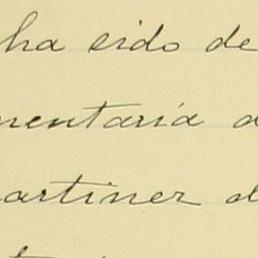 ha sido de
mentaría a
artinez d